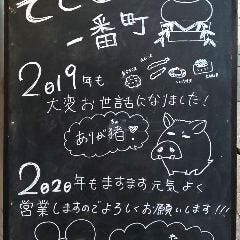 一番町
2019年も
大変お世話になりました!
ありが猪♥
2020年もますます元気よく
営業しますのでよろしくお願いします!!!